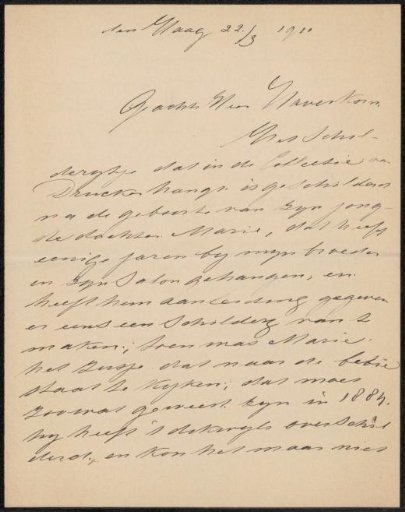 den Haag 22/3 1911
Geachte Heer Haverkorn
Het Schil-
derytje dat in de Collectie van
Drucker hangt is geschilderd
na de geboorte van zyn jong
ste dochter Marie, dat heeft
eenige jaren by myn broeder
in zyn Salon gehangen, en
heeft hem aanleiding gegeven
er eens een Schildery van te
maken; toen was Marie
het zusje dat naar de babie
staat te kyken; dat moet
zoowat geweest zyn in 1884.
hy heeft 't dikwyls overschil
derd, en kon het maar niet